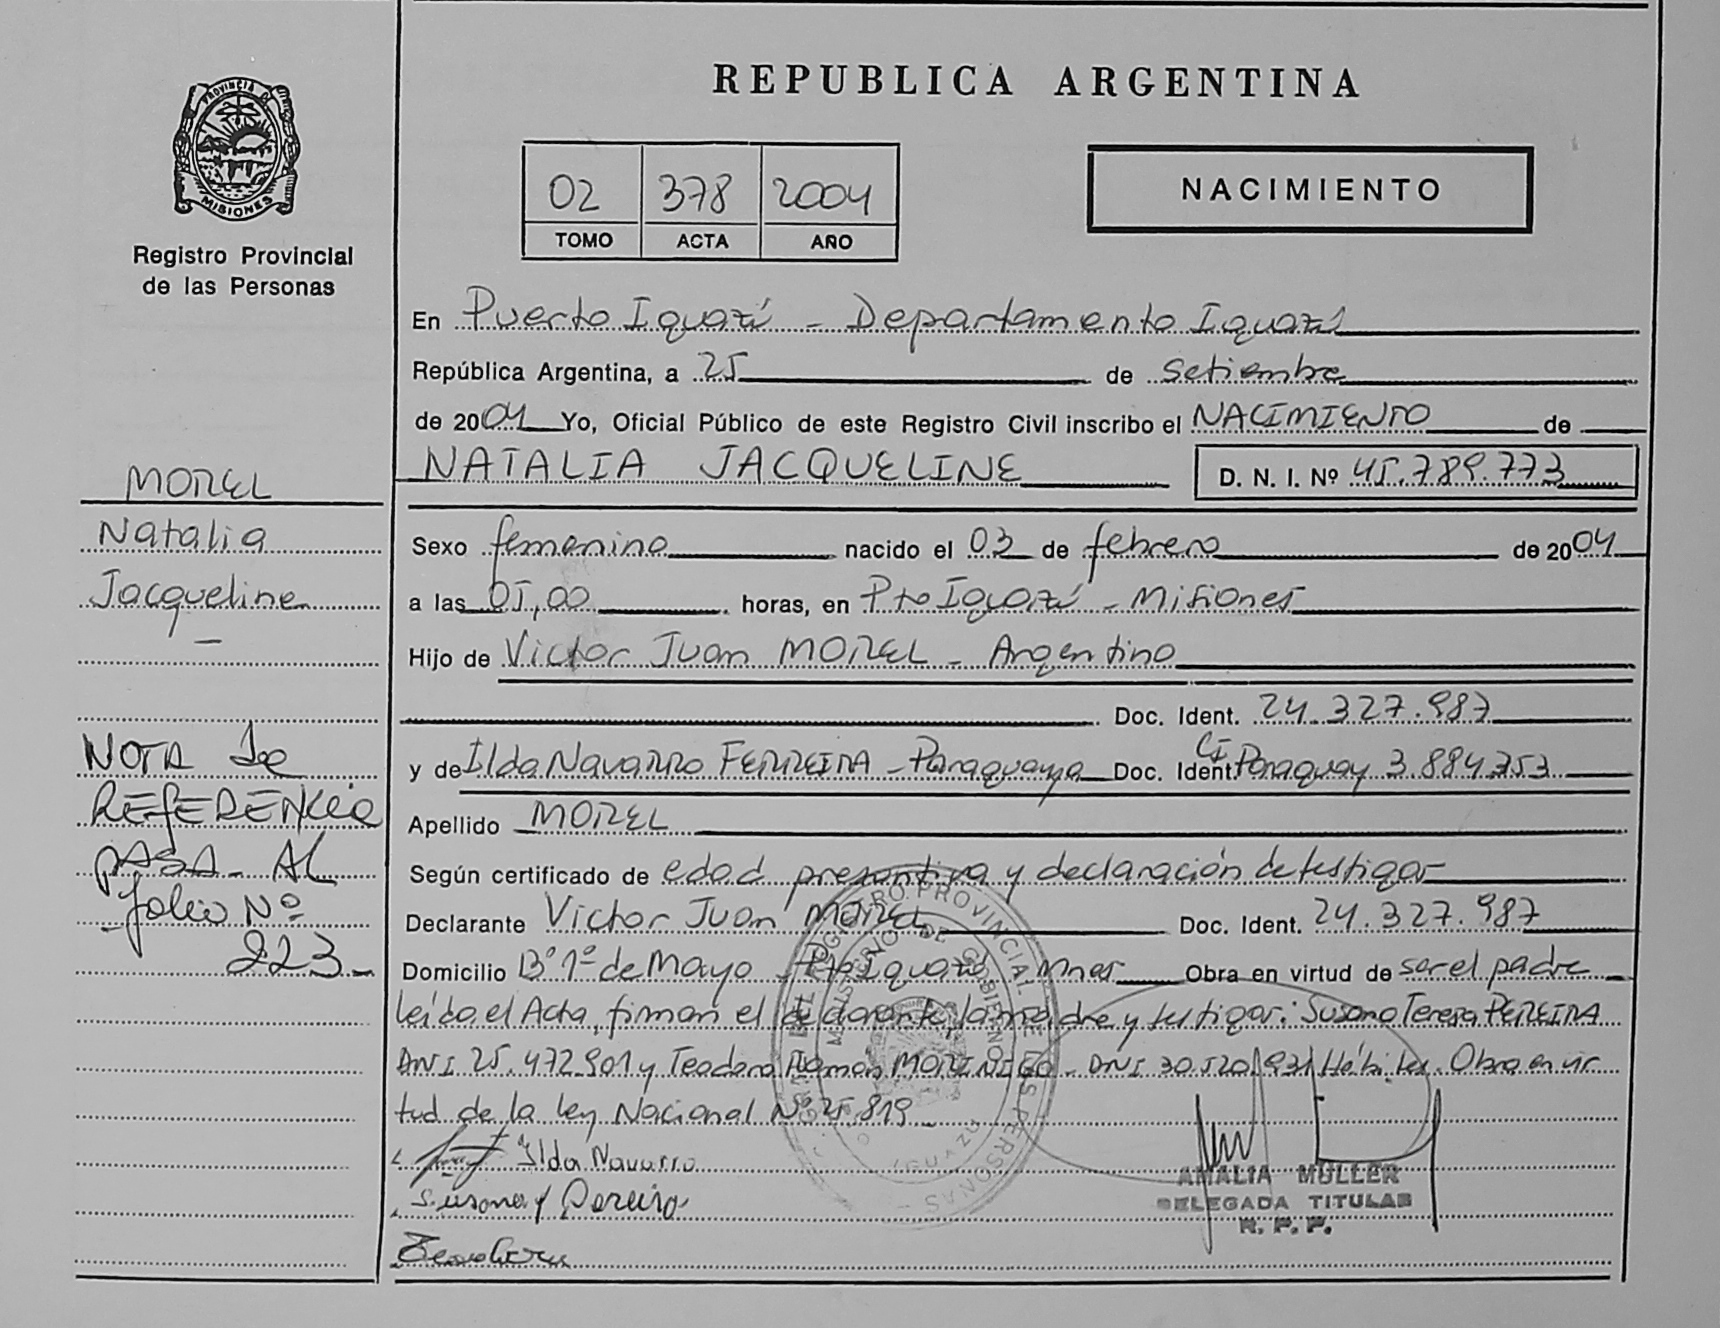 REPUBLICA ARGENTINA
PROVINCIA DE
MISIONES
Registro Provincial
de las Personas
02 378 2004
TOMO ACTA AÑO
NACIMIENTO
En Puerto Iguazú - Departamento Iguazú
República Argentina, a 25 de setiembre
de 2004 Yo, Oficial Público de este Registro Civil inscribo el NACIMIENTO de
NATALIA JACQUELINE D. N. I. Nº 45.789.773
Sexo femenino nacido el 03 de febrero de 2004
a las 05,00 horas, en Pto Iguazú - Misiones
Hijo de Victor Juan MOREL - Argentino
Doc. Ident. 24.327.987
y de Ilda Navarro FERREIRA - Paraguaya Doc. Ident. CI Paraguay 3.884.353
Apellido MOREL
Según certificado de edad presontiva y declaración de testigos
Declarante Victor Juan MOREL Doc. Ident. 24.327.987
Domicilio Bº 1º de Mayo - Pto Iguazú - Mnes Obra en virtud de ser el padre
leído el Acta, firman el declarante, la madre y testigos: Susana Teresa PEREIRA
DNI 25.472.901 y Teodoro Ramón MORINIGO - DNI 30.520.931 Hábiles. Obra en vir
tud de la ley Nacional Nº 25.819
Ilda Navarro
Susana Pereira
AMALIA MULLER
DELEGADA TITULAR
R. P. P.
MOREL
Natalia
Jacqueline
NOTA de
REFERENCIA
PASA AL
folio Nº
223
REGISTRO PROVINCIAL DE LAS PERSONAS
MINISTERIO DE GOBIERNO
IGUAZU